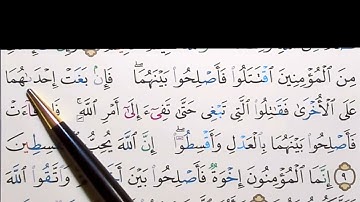 مِنَ الْمُؤْمِنِينَ اقْتَتَلُوا فَأَصْلِحُوا بَيْنَهُمَا ۖ فَإِنْ بَغَتْ إِحْدَىٰهُمَا
عَلَى الْأُخْرَىٰ فَقَٰتِلُوا الَّتِي تَبْغِي حَتَّىٰ تَفِيٓءَ إِلَىٰٓ أَمْرِ اللَّهِ ۚ فَإِنْ فَآءَتْ
فَأَصْلِحُوا بَيْنَهُمَا بِالْعَدْلِ وَأَقْسِطُوٓا ۖ إِنَّ اللَّهَ يُحِبُّ الْمُقْسِطِينَ
٩ إِنَّمَا الْمُؤْمِنُونَ إِخْوَةٌ فَأَصْلِحُوا بَيْنَ وَاتَّقُوا اللَّهَ